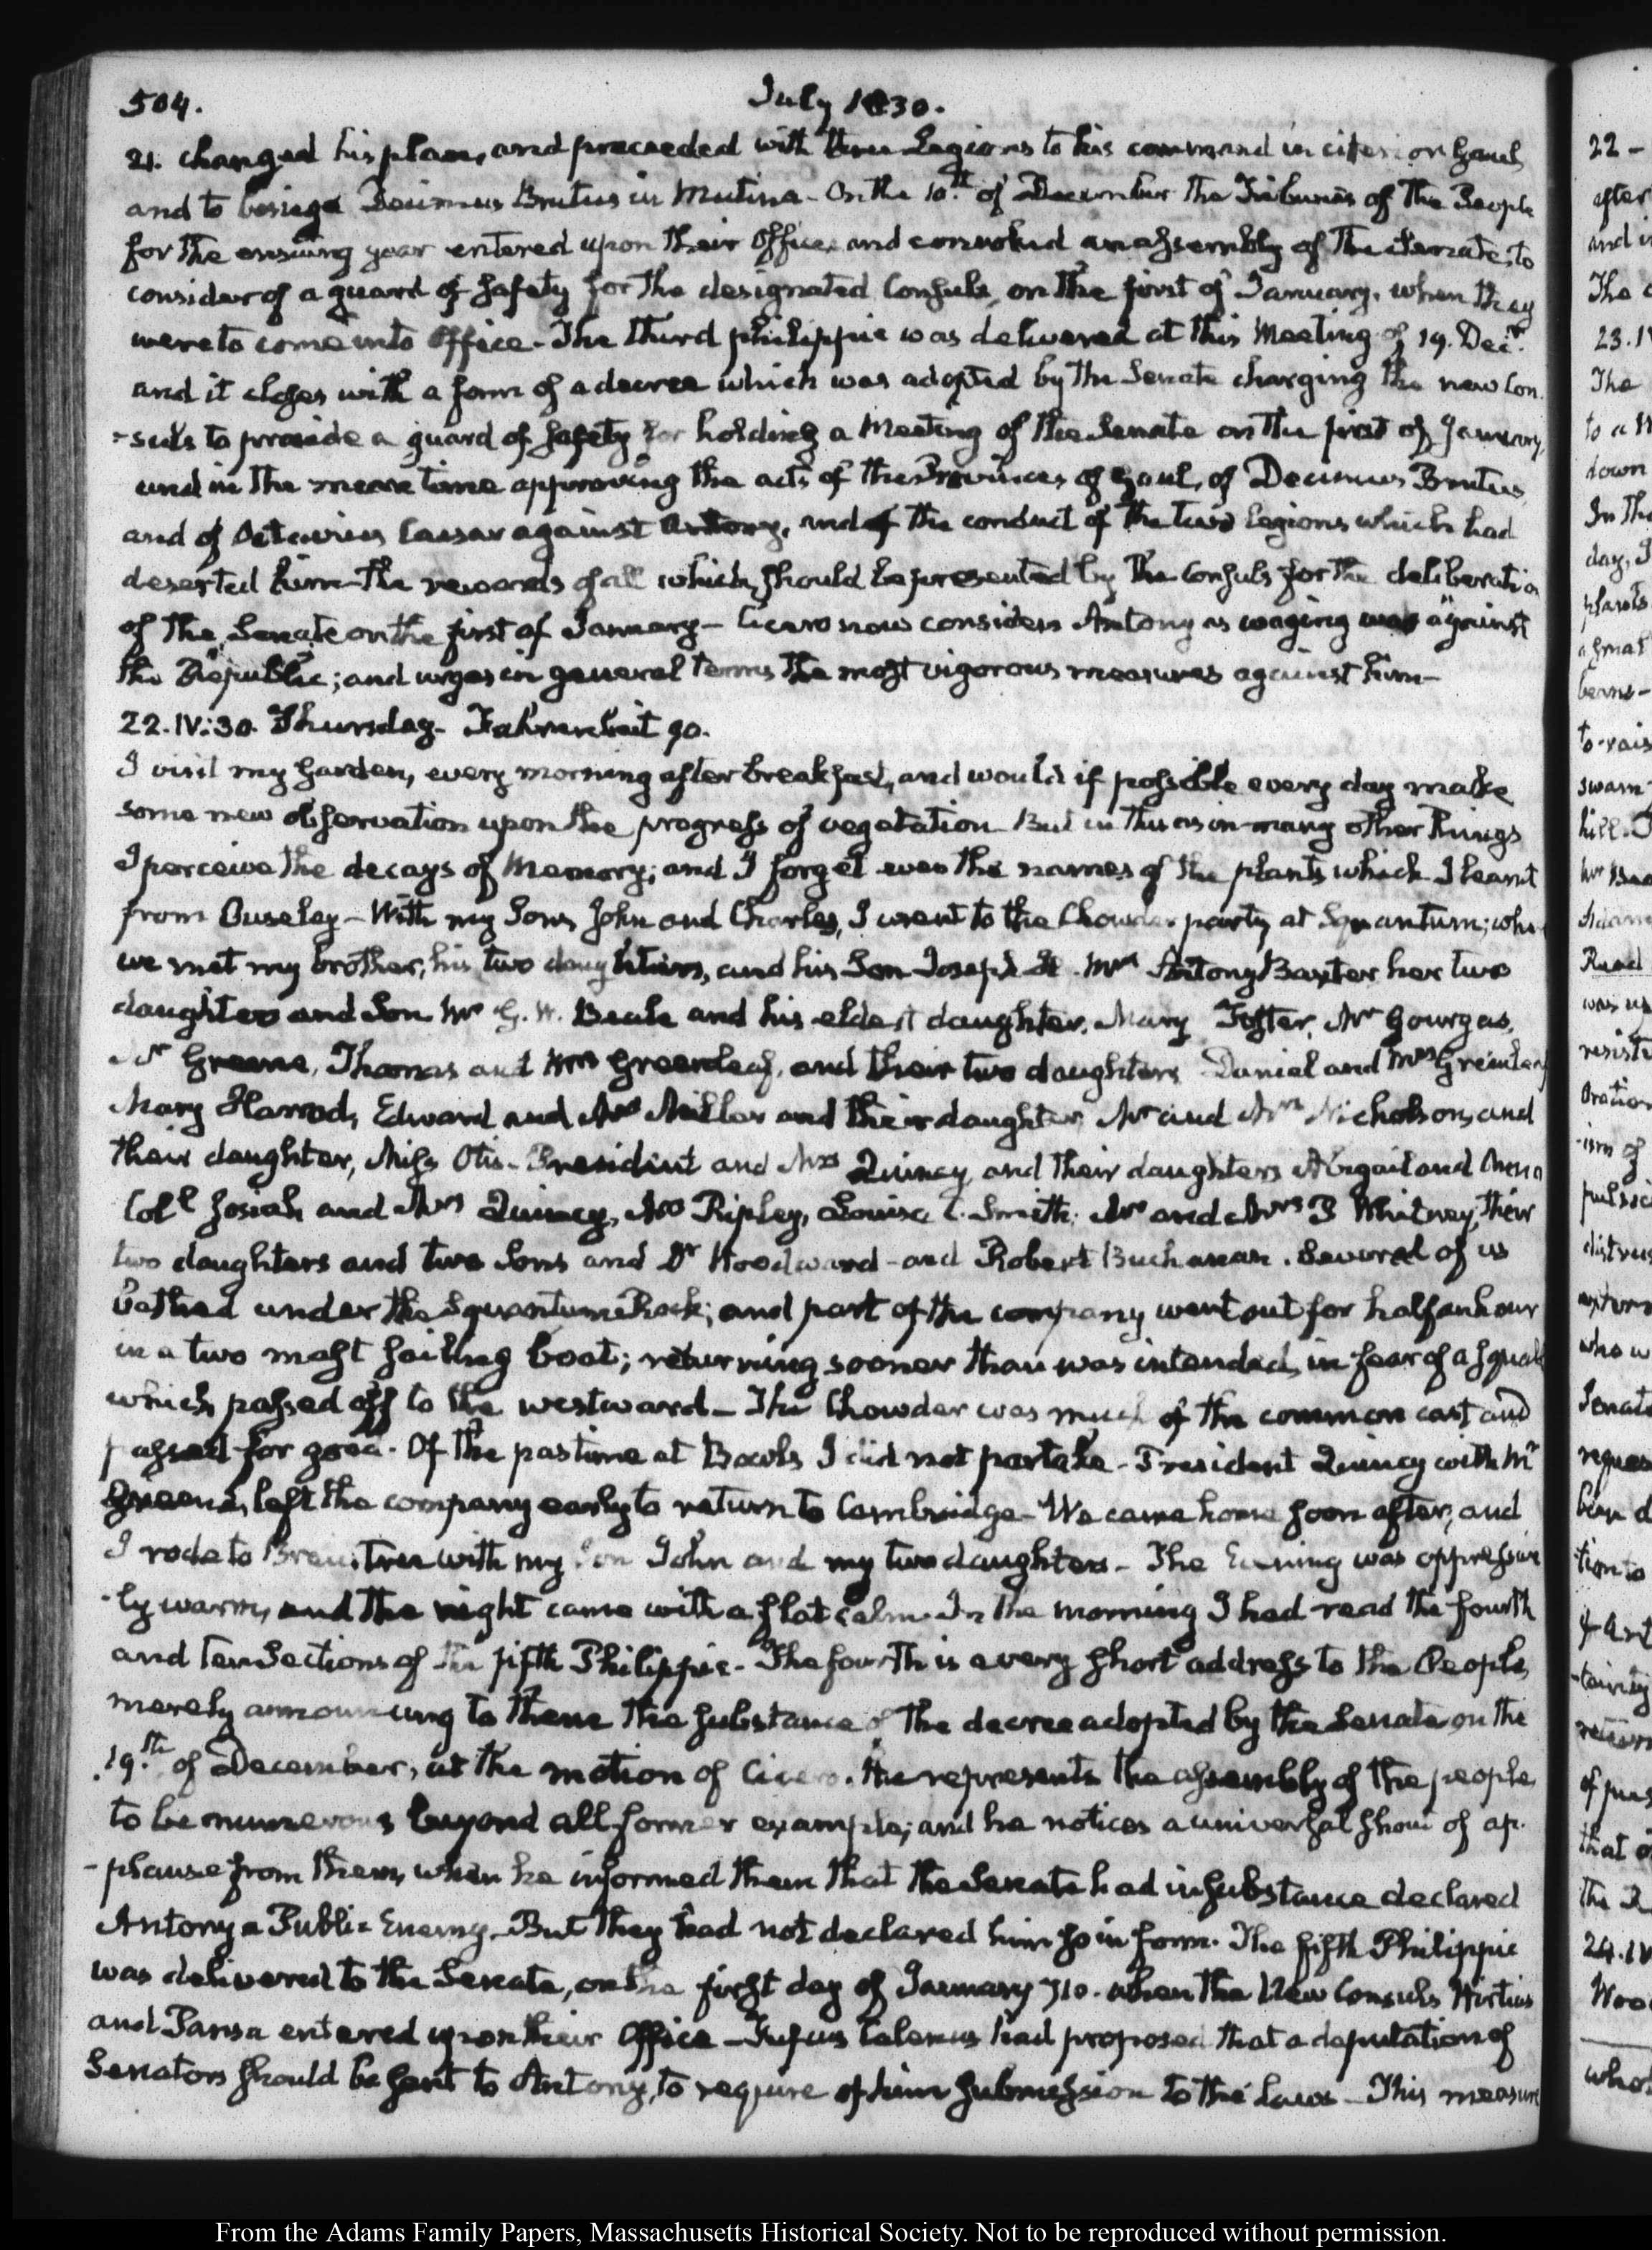 504.
July 1830.
21. changed his plan, and proceeded with three Legions to his command in citerior Gaul,
and to besiege Decimus Brutus in Mutina - On the 10.th of December the Tribunes of the People
for the ensuing year entered upon their Office, and convoked an assembly of the Senate, to
consider of a guard of safety for the designated Consuls, on the first of January, when they
were to come into Office - The third philippic was delivered at this Meeting of 19. Decr.
and it closes with a form of a decree which was adopted by the Senate charging the new Con-
-suls to provide a guard of safety for holding a Meeting of the Senate on the first of January,
and in the mean time approving the acts of the Provinces of Gaul, of Decimus Brutus
and of Octavius Caesar against Antony, and of the conduct of the two legions which had
deserted him - The rewards of all which, should be presented by the Consuls for the deliberation
of the Senate on the first of January - Cicero now considers Antony as waging war against
the Republic; and urges in general terms the most vigorous measures against him -
22. IV:30. Thursday - Fahrenheit 90.
I visit my Garden, every morning after breakfast, and would if possible every day make
some new observation upon the progress of vegetation - But in this as in many other things
I perceive the decays of Memory; and I forget even the names of the plants which I learnt
from Ouseley - With my Sons John and Charles, I went to the Chowder party at Squantum; where
we met my brother, his two daughters, and his Son Joseph H. Mrs Antony Baxter her two
daughters and Son Mr G. W. Beale and his eldest daughter, Mary Foster, Mr Gourgas,
Mr Greene, Thomas and Mrs Greenleaf, and their two daughters Daniel and Mrs Greenleaf
Mary Harrod, Edward and Mrs Miller and their daughter, Mr and Mrs Nicholson, and
their daughter, Miss Otis - President and Mrs Quincy, and their daughters Abigail and Anna
Coll Josiah and Mrs Quincy, Mrs Ripley, Louisa C. Smith, Mr and Mrs T Whitney, their
two daughters and two Sons and Dr Woodward - and Robert Buchanan. Several of us
bathed under the Squantum Rock; and part of the company went out for half an hour
in a two mast sailing boat; returning sooner than was intended, in fear of a squall
which passed off to the westward - The Chowder was much of the common cast and
passed for good - Of the pastime at Bowls I did not partake - President Quincy with Mr
Greene, left the company early to return to Cambridge - We came home soon after, and
I rode to Braintree with my Son John and my two daughters - The Evening was oppressive
-ly warm, and the night came with a flat calm. In the morning I had read the fourth
and ten Sections of the fifth Philippic - The fourth is a very short address to the People,
merely announcing to them the substance of the decree adopted by the Senate on the
19.th of December, at the motion of Cicero. He represents the assembly of the people
to be numerous beyond all former example; and he notices a universal shout of ap-
-plause from them, when he informed them that the Senate had in substance declared
Antony a Public Enemy - But they had not declared him so in form. The fifth Philippic
was delivered to the Senate, on the first day of January 710. when the New Consuls Hirtius
and Pansa entered upon their Office - Fufius Calenus had proposed that a deputation of
Senators should be sent to Antony, to require of him submission to the Laws - This measure
22 -
after
The
23. IV
The
to a
down
In the
day, I
plants
to rais
swarm
hill.
Read
was
resist
Oration
ism of
who w
Senat
reques
been d
tion to
of
that
the
24. IV
Woo
who
From the Adams Family Papers, Massachusetts Historical Society. Not to be reproduced without permission.